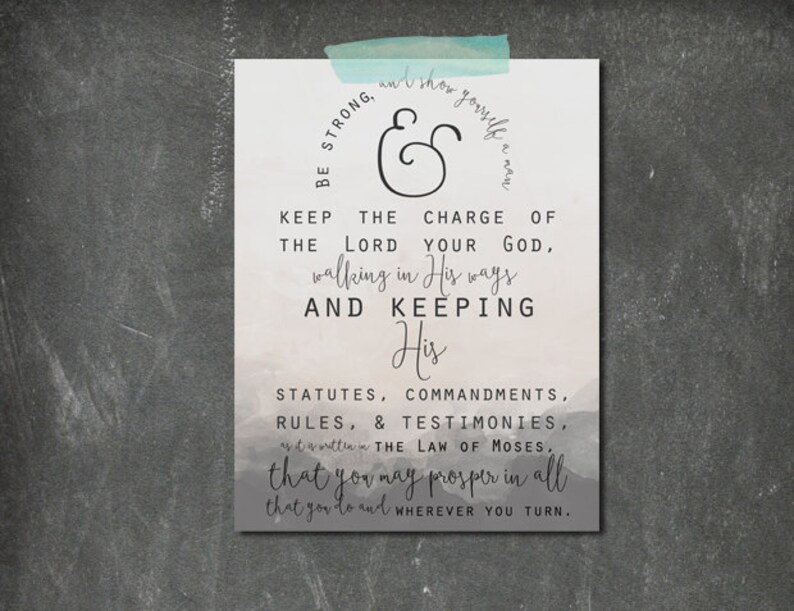 Be strong, and show yourself a man
&
keep the charge of
the Lord your God,
walking in His ways
AND KEEPING
His
STATUTES, COMMANDMENTS,
RULES, & TESTIMONIES,
as it is written in THE LAW OF MOSES,
that you may prosper in all
that you do and WHEREVER YOU TURN.